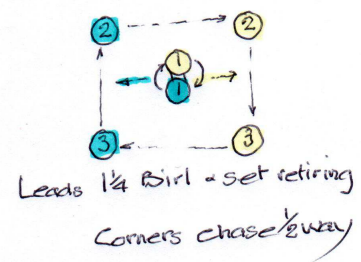 2 2
1
1
3 3
Leads 1¼ Birl & set retiring
Corners chase ½ way